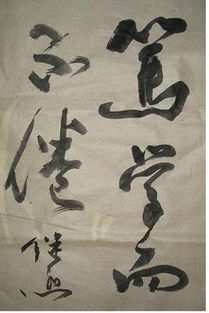 篤学而
不倦